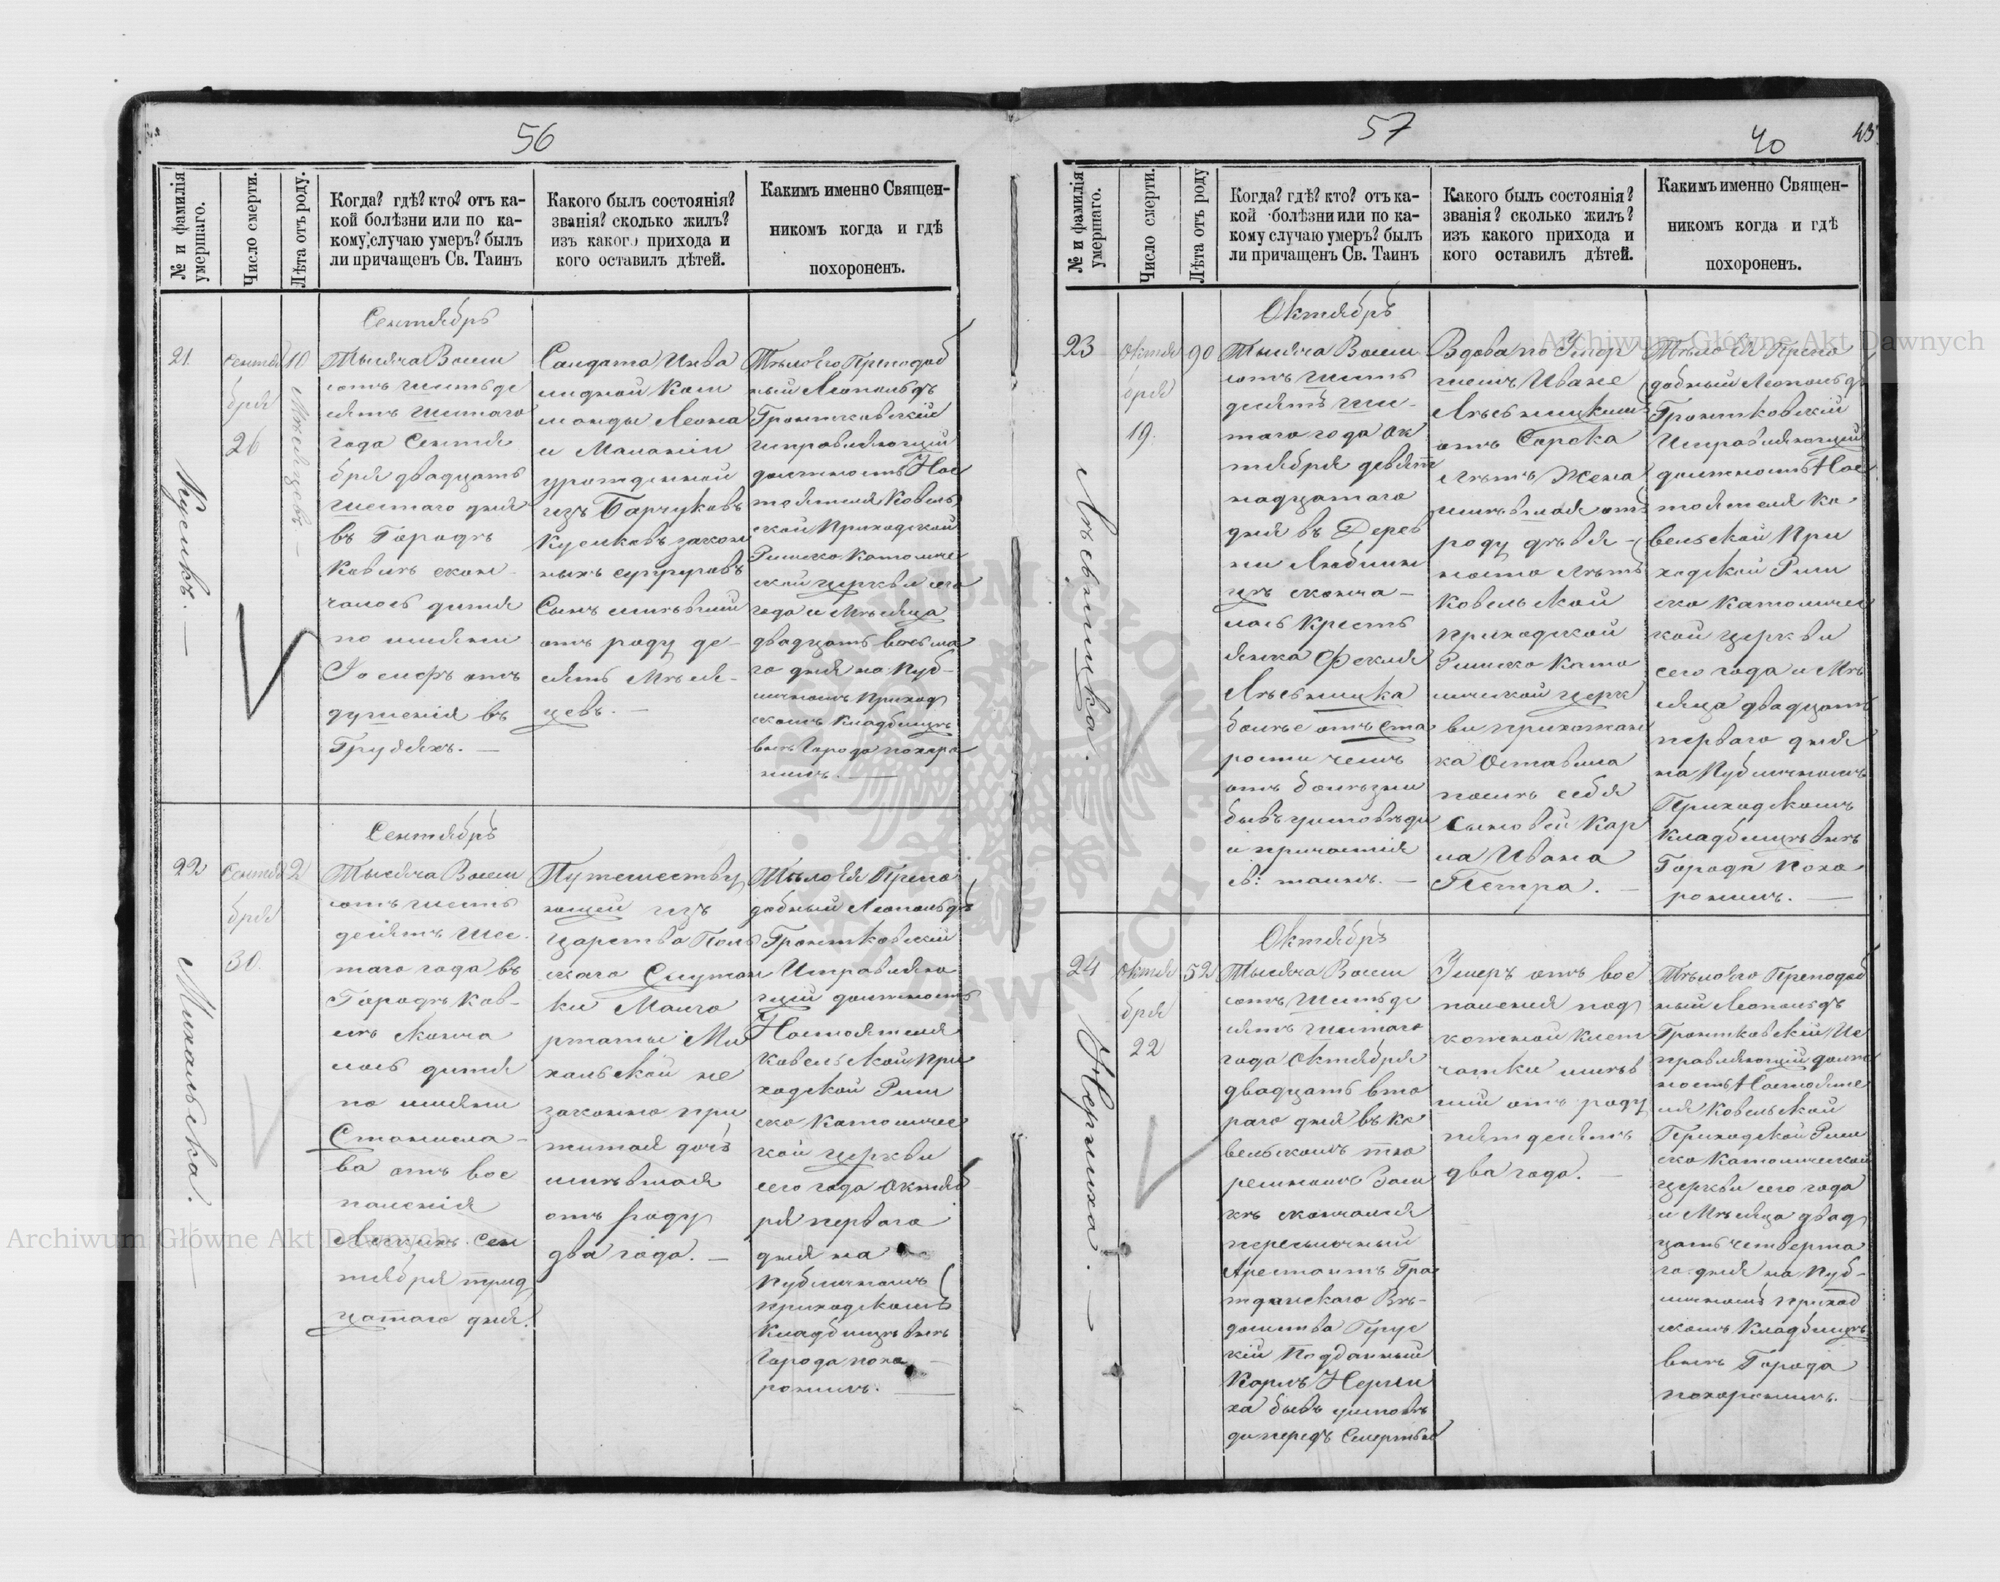 56
№ и фамилія умершаго.
Число смерти.
Лѣта отъ роду.
Когда? гдѣ? кто? отъ ка-
кой болѣзни или по ка-
кому случаю умеръ? былъ
ли причащенъ Св. Таинъ
Какого былъ состоянія?
званія? сколько жилъ?
изъ какого прихода и
кого оставилъ дѣтей.
Какимъ именно Священ-
никомъ когда и гдѣ
похороненъ.
21.
Кусикъ. —
Сентя
бря
26
10
Мѣсяцевъ —
Сентябръ
Тысяча Восем
сотъ шестьде
сятъ шестаго
года Сентя
бря двадцать
шестаго дня
въ Городѣ
Ковлѣ скон-
чалось дитя
по имени
Іосифъ отъ
душенія въ
Грудяхъ. —
Солдата Инва
лидной Ком
манды Леона
и Маланіи
урожденной
изъ Барчуковъ
Кусиковъ закон
ныхъ супруговъ
Сынъ имѣвшій
отъ роду де-
сять Мѣся-
цевъ. —
Тѣло его Преподоб
ный Леопольдъ
Гронтковскій
исправляющій
должность Нас
тоятеля Ковель
ской Приходской
Римско Католиче
ской церкви сего
года и Мѣсяца
двадцать восьма
го дня на Пуб-
личномъ Приход
скомъ Кладбищѣ
внѣ Города похоро
нилъ. —
22
Михальска. —
Сентя
бря
30.
2
Сентябръ
Тысяча Восем
сотъ шесть
десятъ Шес
таго года въ
Городѣ Ков-
лѣ сконча
лось дитя
по имени
Станисла-
ва отъ вос
паленія
Легкихъ Сен
тября трид
цатаго дня.
Путешеству
ющей изъ
Царства Поль
скаго Служан
ки Марго
ржаты Ми
хальской не
законно при
житая дочь
имѣвшая
отъ роду
два года. —
Тѣло ея Препо
добный Леопольдъ
Гронтковскій
Исправляю
щій должность
Настоятеля
Ковельской При
ходской Рим
ско Католичес
кой церкви
сего года Октяб
ря перваго
дня на
Публичномъ
приходскомъ
Кладбищѣ внѣ
Города похо
ронилъ. —
57
40
43
№ и фамилія умершаго.
Число смерти.
Лѣта отъ роду
Когда? гдѣ? кто? отъ ка-
кой болѣзни или по ка-
кому случаю умеръ? былъ
ли причащенъ Св. Таинъ
Какого былъ состоянія?
званія? сколько жилъ?
изъ какого прихода и
кого оставилъ дѣтей.
Какимъ именно Священ-
никомъ когда и гдѣ
похороненъ.
23
Лѣсьницка.
Октя
бря
19.
90
Октябръ
Тысяча Восем
сотъ шесть
десятъ ше-
таго года Ок
тября девят
надцатаго
дня въ Дерев
ни Любли
цѣ сконча-
лась Кресть
янка Фекля
Лѣсьницка
болѣе отъ ста
рости чемъ
отъ болѣзни
бывъ у исповѣди
и причастія
св: таинъ. —
Вдова по Умер
шемъ Иване
Лѣсьницкимъ
отъ Сорока
лѣтъ Жена
имѣвшая отъ
роду девя-
носто лѣтъ
Ковельской
приходской
Римско Като
лической церк
ви прихожан
ка Оставила
послѣ себя
Сыновей Кар
ла Ивана
Петра. —
Тѣло ея Препо
добный Леопольдъ
Гронтковскій
Исправляющій
должность Нас
тоятеля Ко-
вельской При
ходской Рим
ско Католичес
кой церкви
сего года и Мѣ
сяца двадцать
перваго дня
на Публичномъ
Приходскомъ
Кладбищѣ внѣ
Города Похо
ронилъ. —
24
Нерлиха. —
Октя
бря
22
52
Октябрь
Тысяча Восем
сотъ шестьде
сятъ шестаго
года Октября
двадцать вто
раго дня въ Ко
вельскомъ тю
ремномъ Зам
кѣ скончался
пересыльный
Арестантъ Гра
жданскаго Вѣ-
домства Прус
кій Подданный
Карлъ Нерли
ха бывъ у исповѣ
ди передъ Смертью
Умеръ отъ вос
паленія под
кожной клет
чатки имѣв
шій отъ роду
пятдесятъ
два года. —
Тѣло его Преподоб
ный Леопольдъ
Гронтковскій Ис
правляющій долж
ность Настояте
ля Ковельской
Приходской Рим
ско Католической
церкви сего года
и Мѣсяца двад
цать четверта
го дня на Пуб-
личномъ приход
скомъ Кладбищѣ
внѣ Города
похоронилъ. —
Archiwum Główne Akt Dawnych
Archiwum Główne Akt Dawnych
ARCHIWUM GŁÓWNE AKT DAWNYCH